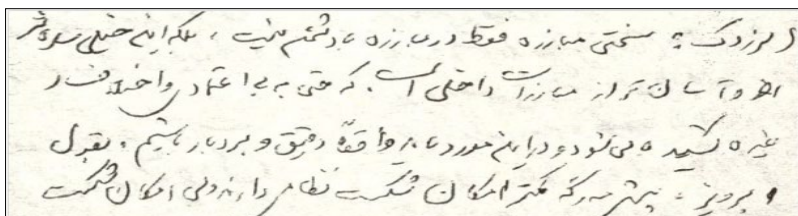 سختی مبارزه فقط در مبارزه با دشمن نیست، بلکه این خیلی ساده‌تر
و آسان‌تر از مبارزات داخلی است. که حتی به بی‌اعتمادی و اختلاف و
غیره کشیده می‌شود و در این مورد باید واقعاً دقیق و بردبار باشیم، بقول
پرویز، پیشمرگه کمتر امکان شکست نظامی دارند ولی امکان شکست